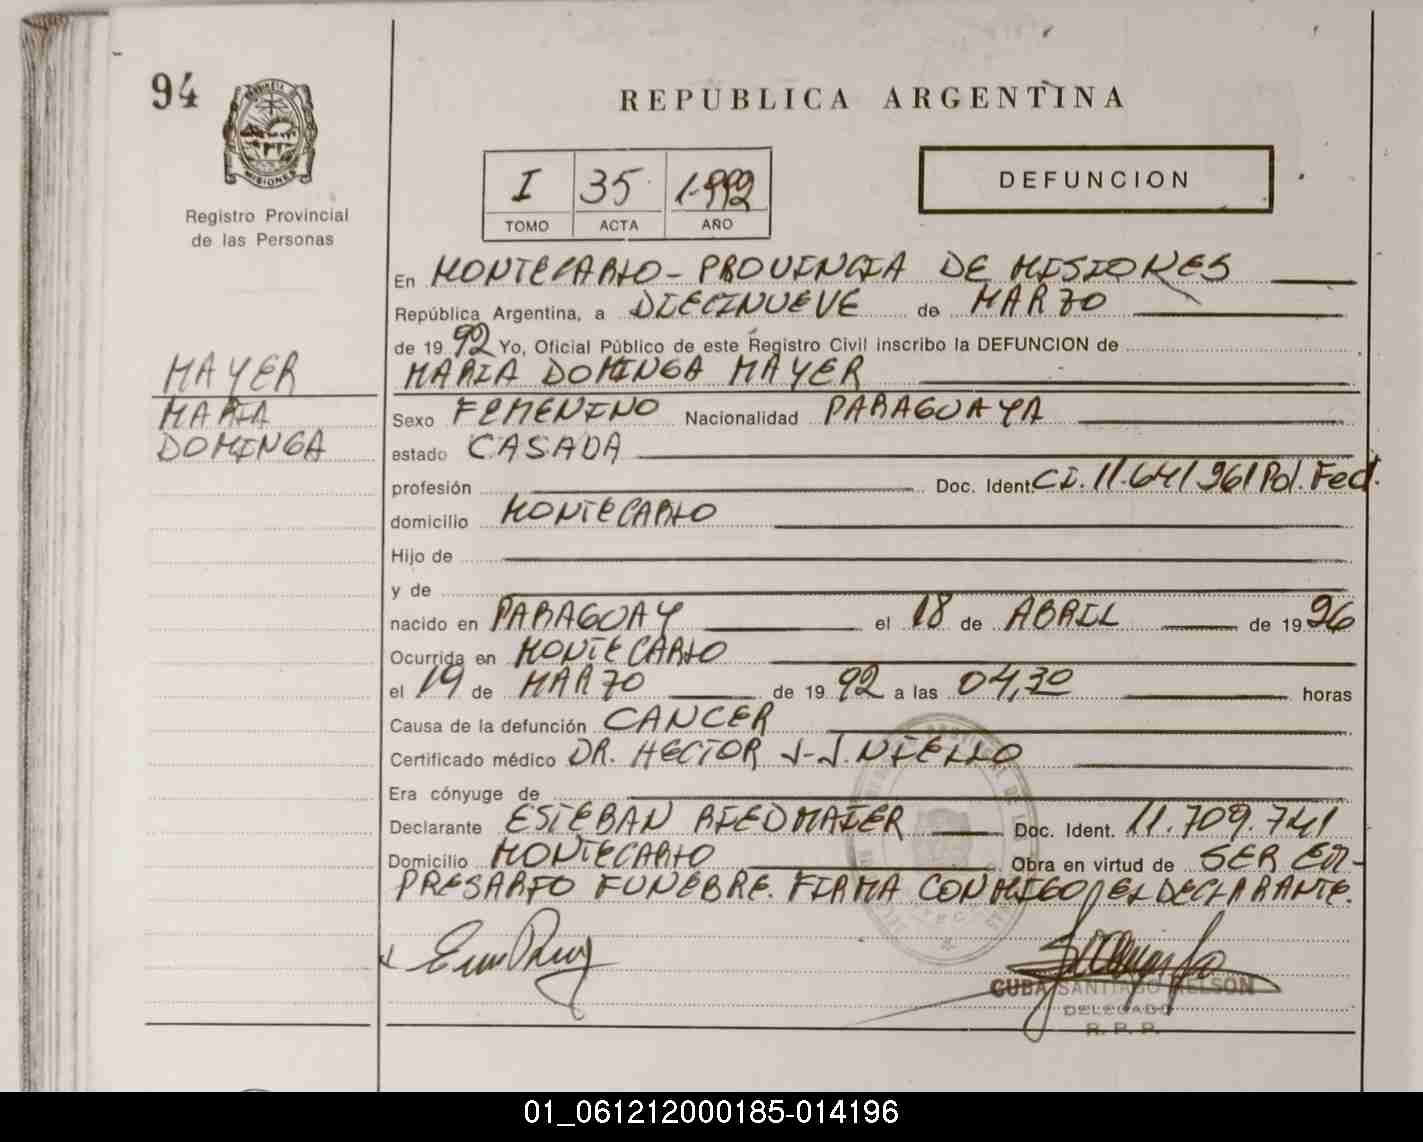 94
PROVINCIA DE
MISIONES
Registro Provincial
de las Personas
REPUBLICA ARGENTINA
I 35 1.992
TOMO ACTA AÑO
DEFUNCION
En MONTECARLO - PROVINCIA DE MISIONES
República Argentina, a DIECINUEVE de MARZO
de 1992 Yo, Oficial Público de este Registro Civil inscribo la DEFUNCION de
MARIA DOMINGA MAYER
MAYER
MARIA
DOMINGA
Sexo FEMENINO Nacionalidad PARAGUAYA
estado CASADA
profesión Doc. Ident. CI. 11.641961 Pol. Fed.
domicilio MONTECARLO
Hijo de
y de
nacido en PARAGUAY el 18 de ABRIL de 1926
Ocurrida en MONTECARLO
el 19 de MARZO de 1992 a las 04,30 horas
Causa de la defunción CANCER
Certificado médico DR. HECTOR J.J. NIELLO
Era cónyuge de
Declarante ESTEBAN RIEDMAIER Doc. Ident. 11.709.741
Domicilio MONTECARLO Obra en virtud de SER EM-
PRESARIO FUNEBRE. FIRMA CONMIGO EL DECLARANTE.
CUBA SANTIAGO NELSON
DELEGADO
R. P. P.
01_061212000185-014196